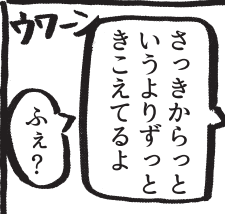 ウワーン
さっきからっと
いうよりずっと
きこえてるよ
ふぇ?